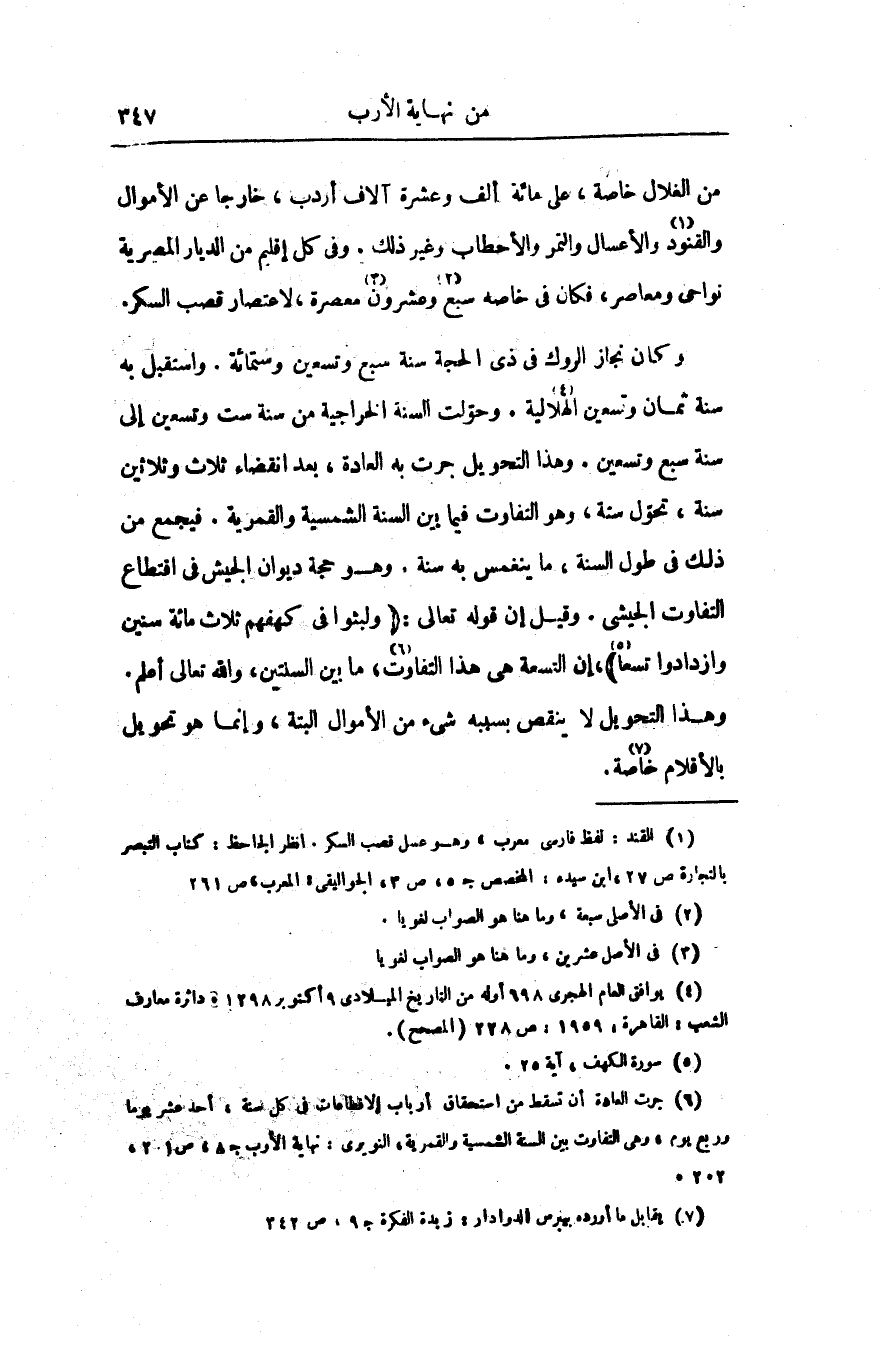 من نهاية الأرب ٣٤٧
من الغلال خاصة ، على مائة ألف وعشرة آلاف أردب ، خارجا عن الأموال
والقنود (١) والأعسال والتمر والأحطاب وغير ذلك . وفى كل إقليم من الديار المصرية
نواحى ومعاصر ، فكان فى خاصه سبع (٢) وعشرون (٣) معصرة ، لاعتصار قصب السكر .
وكان نجاز الروك فى ذى الحجة سنة سبع وتسعين وستمائة . واستقبل به
سنة ثمان وتسعين الهلالية (٤) . وحوّلت السنة الخراجية من سنة ست وتسعين إلى
سنة سبع وتسعين . وهذا التحويل جرت به العادة ، بعد انقضاء ثلاث وثلاثين
سنة ، تحوّل سنة ، وهو التفاوت فيما بين السنة الشمسية والقمرية . فيجمع من
ذلك فى طول السنة ، ما ينغمس به سنة . وهو حجة ديوان الجيش فى اقتطاع
التفاوت الجيشى . وقيل إن قوله تعالى : ( ولبثوا فى كهفهم ثلاث مائة سنين
وازدادوا تسعا (٥) ) ، إن التسعة هى هذا التفاوت (٦) ، ما بين السنتين ، والله تعالى أعلم .
وهذا التحويل لا ينقص بسببه شىء من الأموال البتة ، وإنما هو تحويل
بالأقلام خاصة (٧) .
(١) القند : لفظ فارسى معرب ، وهو عسل قصب السكر . انظر الجاحظ : كتاب التبصر
بالتجارة ص ٢٧ ، ابن سيده : المخصص ج ٥ ، ص ٣ ، الجواليقى : المعرب ، ص ٢٦١
(٢) فى الأصل سبعة ، وما هنا هو الصواب لغويا .
(٣) فى الأصل عشرين ، وما هنا هو الصواب لغويا
(٤) يوافق العام الهجرى ٦٩٨ أوله من التاريخ الميلادى ٩ أكتوبر ١٢٩٨ ؛ دائرة معارف
الشعب : القاهرة ، ١٩٥٩ : ص ٢٢٨ (المصحح) .
(٥) سورة الكهف ، آية ٢٥ .
(٦) جرت العادة أن تسقط من استحقاق أرباب الإقطاعات فى كل سنة ، أحد عشر يوما
وربع يوم ، وهى التفاوت بين السنة الشمسية والقمرية ، النويرى : نهاية الأرب ج ٨ ، ص ٢٠١ ،
٢٠٢ .
(٧) يقابل ما أورده بيبرس الدوادار : زبدة الفكرة ج ٩ ، ص ٣٤٢